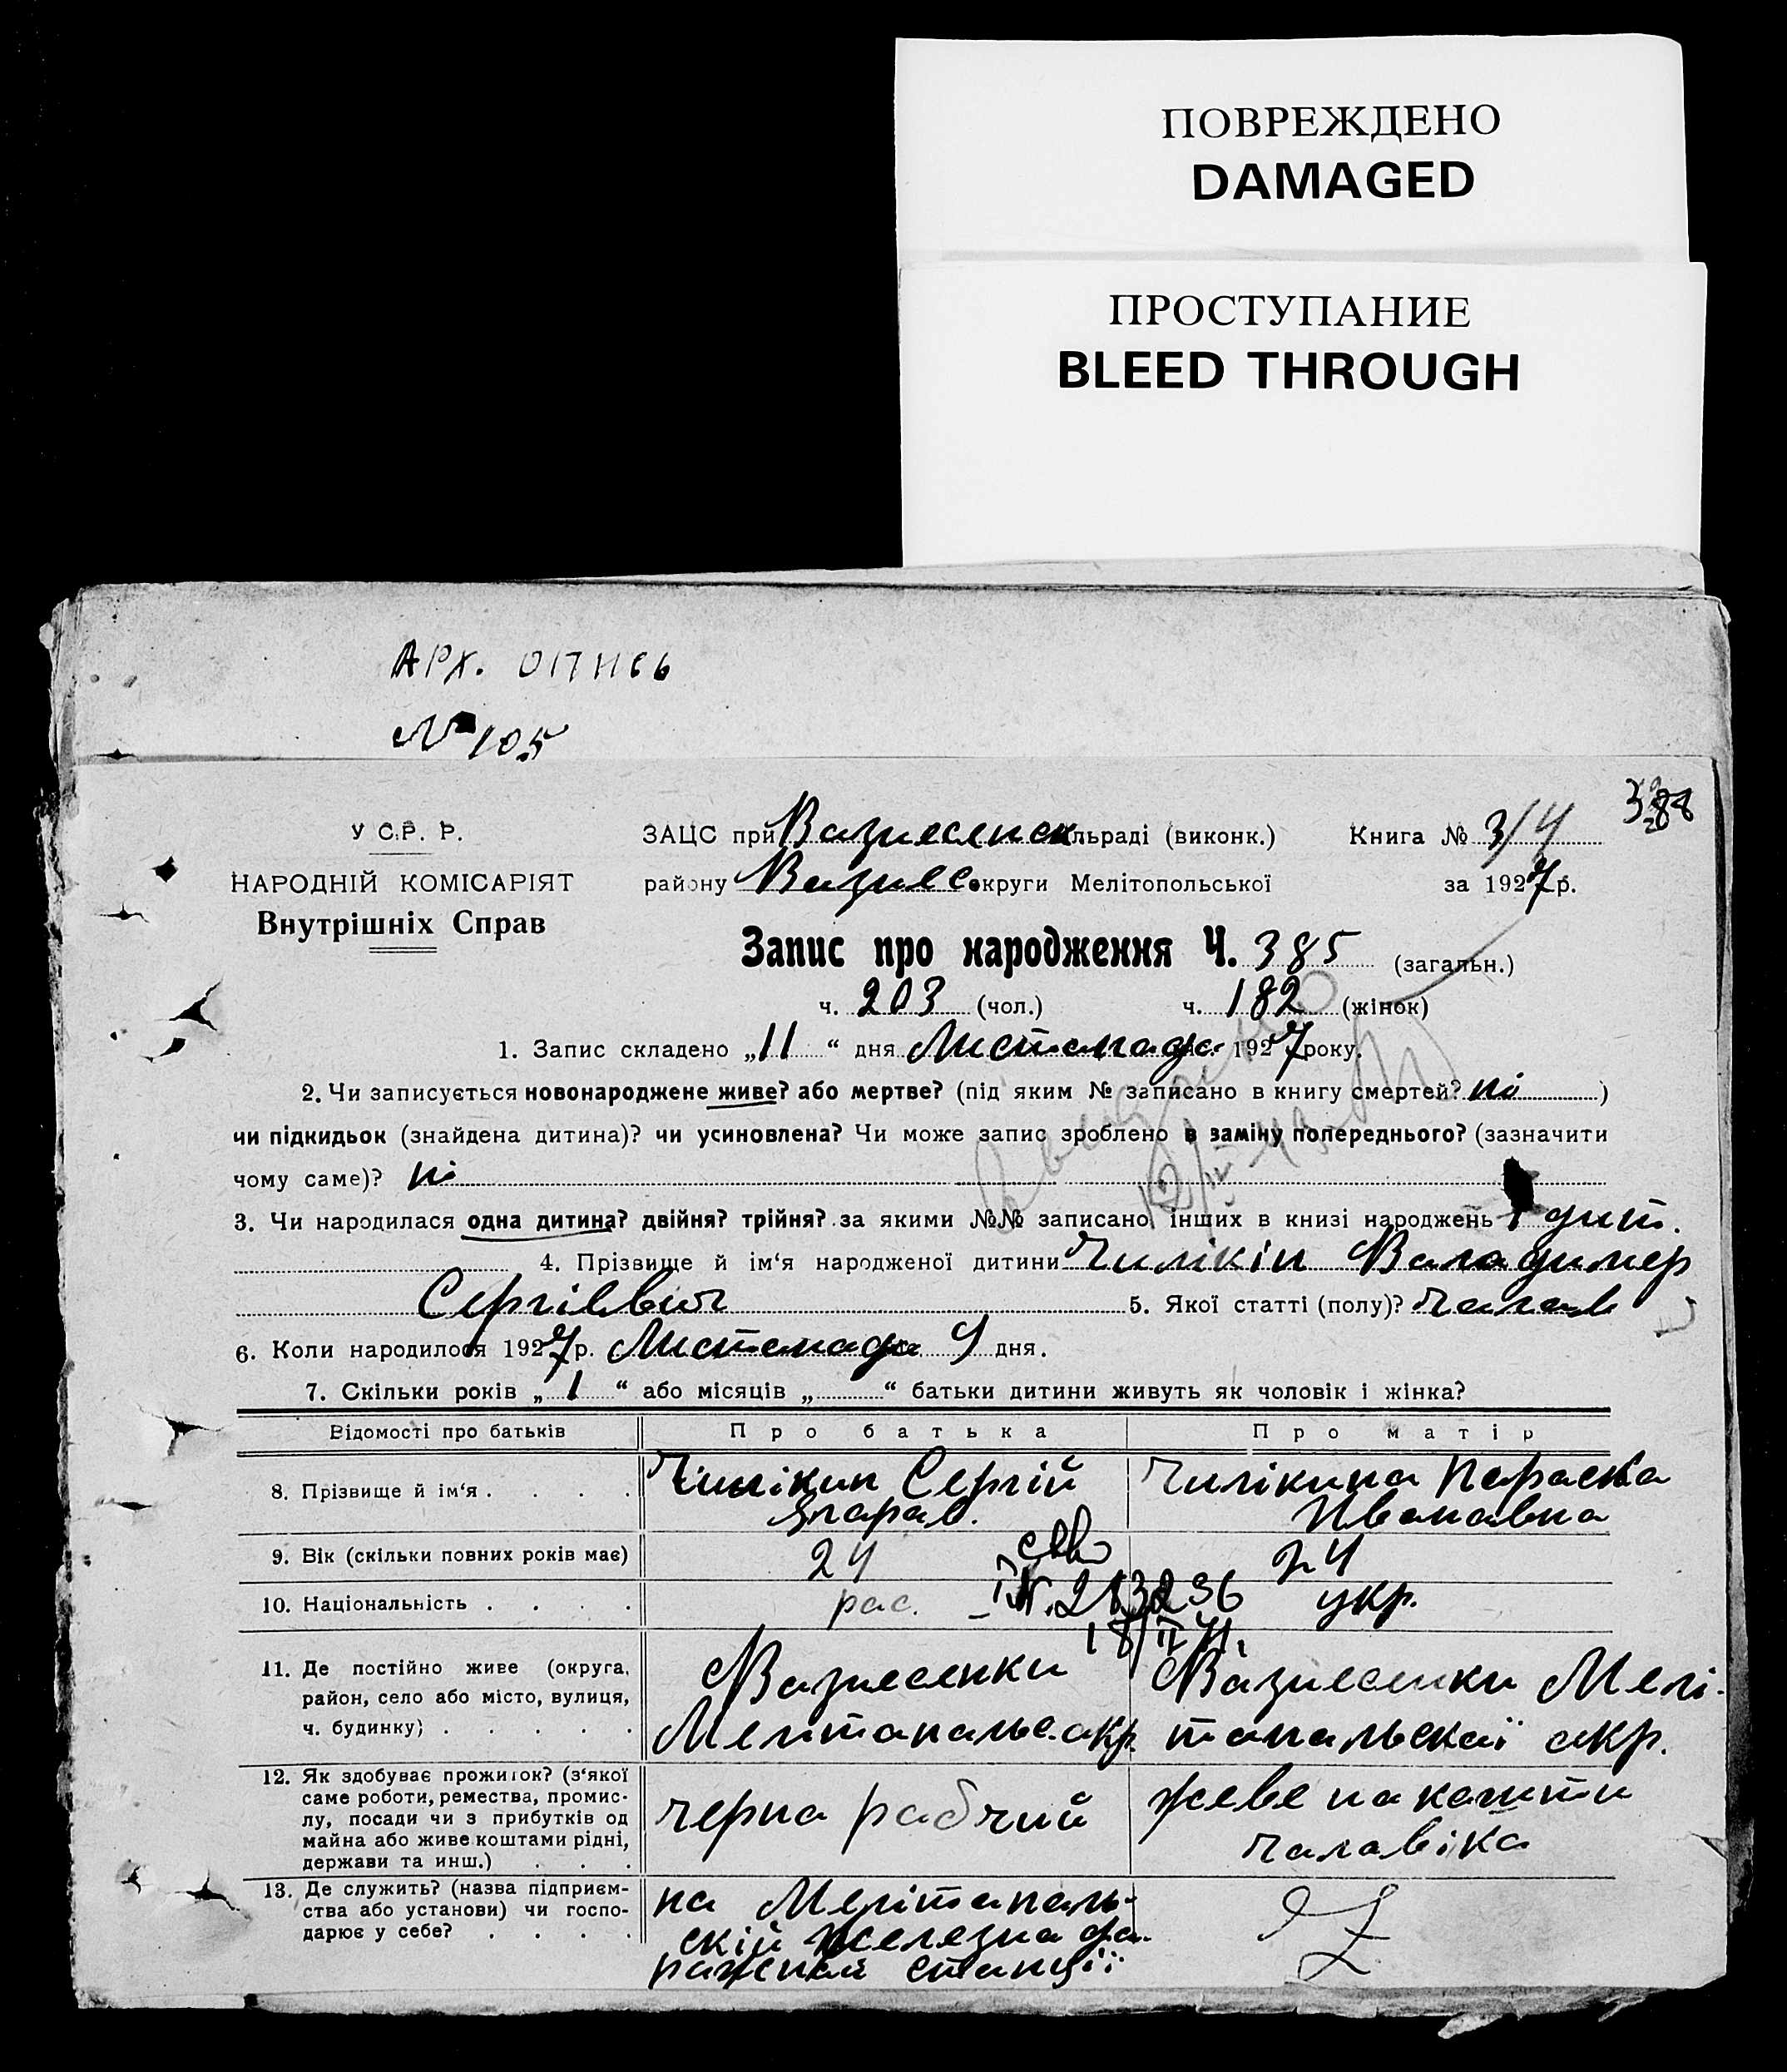 ПОВРЕЖДЕНО
DAMAGED
ПРОСТУПАНИЕ
BLEED THROUGH
АРХ. ОПИСЬ
№ 105
388
У С.Р. Р.
НАРОДНІЙ КОМІСАРІЯТ
Внутрішніх Справ
ЗАЦС при Вазнесенск. льраді (виконк.) Книга № 3/4
району Вазнес округи Мелітопольської за 1927 р.
Запис про народження Ч. 385 (загальн.)
ч. 203 (чол.) ч. 182 (жінок)
1. Запис складено „11“ дня Листопада 1927 року.
2. Чи записується новонароджене живе? або мертве? (під яким № записано в книгу смертей? ні )
чи підкидьок (знайдена дитина)? чи усиновлена? Чи може запис зроблено в заміну попереднього? (зазначити
чому саме)? ні
3. Чи народилася одна дитина? двійня? трійня? за якими №№ записано інших в книзі народжень 1 дит.
4. Прізвище й ім‘я народженої дитини Чилікін Валадимер
Сергіевич 5. Якої статті (полу)? чалав
6. Коли народилося 1927 р. Листопада 9 дня.
7. Скільки років „ 1 “ або місяців „ “ батьки дитини живуть як чоловік і жінка?
Відомості про батьків Про батька Про матір
8. Прізвище й ім‘я . . . . Чилікин Сергій Чилікина Параска
Ивановна
9. Вік (скільки повних років має) 24 24
10. Національність . . . . рас. укр.
18/II 41.
11. Де постійно живе (округа, район, село або місто, вулиця, ч. будинку) . . . . . Вазнесенки Вазнесенки Мелі-
Мелітапальс. окр. тапальскаї окр.
12. Як здобуває прожиток? (з‘якої саме роботи, ремества, промислу, посади чи з прибутків од майна або живе коштами рідні, держави та инш.) . . . черна рабчий жеве на кошти
чалавіка
13. Де служить? (назва підприємства або установи) чи господарює у себе? . . . . на Мелітапаль-
скій железна да-
рожной станції